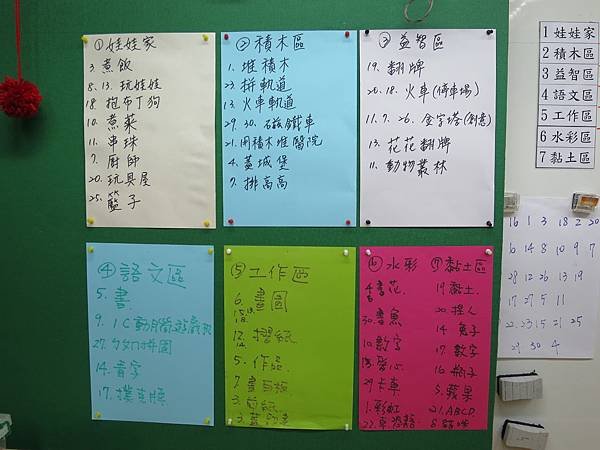 ①娃娃家
3. 煮飯
8. 13. 玩娃娃
18 抱布丁狗
10. 煮菜
11. 串珠
7. 廚師
20. 玩具屋
25. 籃子
②積木區
1. 堆積木
23. 拼軌道
13. 火車軌道
29. 30. 磁鐵車
21. 用積木堆醫院
4. 蓋城堡
7. 排高高
③益智區
19. 翻牌
20. 18. 火車(停車場)
11. 7. 26. 金字塔(創意)
13. 花花翻牌
11. 動物叢林
④語文區
5. 書
9. IC動腦遊戲
27. ㄅㄆㄇ拼圖
14. 音字
17. 撲克牌
⑤工作區
6. 畫圖
12. 摺紙
14.
5. 作品
7 畫
3. 剪紙
3.
⑥水彩
4 畫花.
30. 畫魚
10 數字
愛心
29 卡車
1. 彩虹
22. 恐龍
⑦黏土區
19 黏土.
20. 捏人
14. 兔子
17. 數字
16. 瓶子
5. 蘋果
21. ABCD.
8.
1 娃娃家
2 積木區
3 益智區
4 語文區
5 工作區
6 水彩區
7 黏土區
16 1 3 18 2 20
6 14 8 10 9 7
28 12 26 13 19
17 27 5 11
22 23 15 21 25
29 30 4